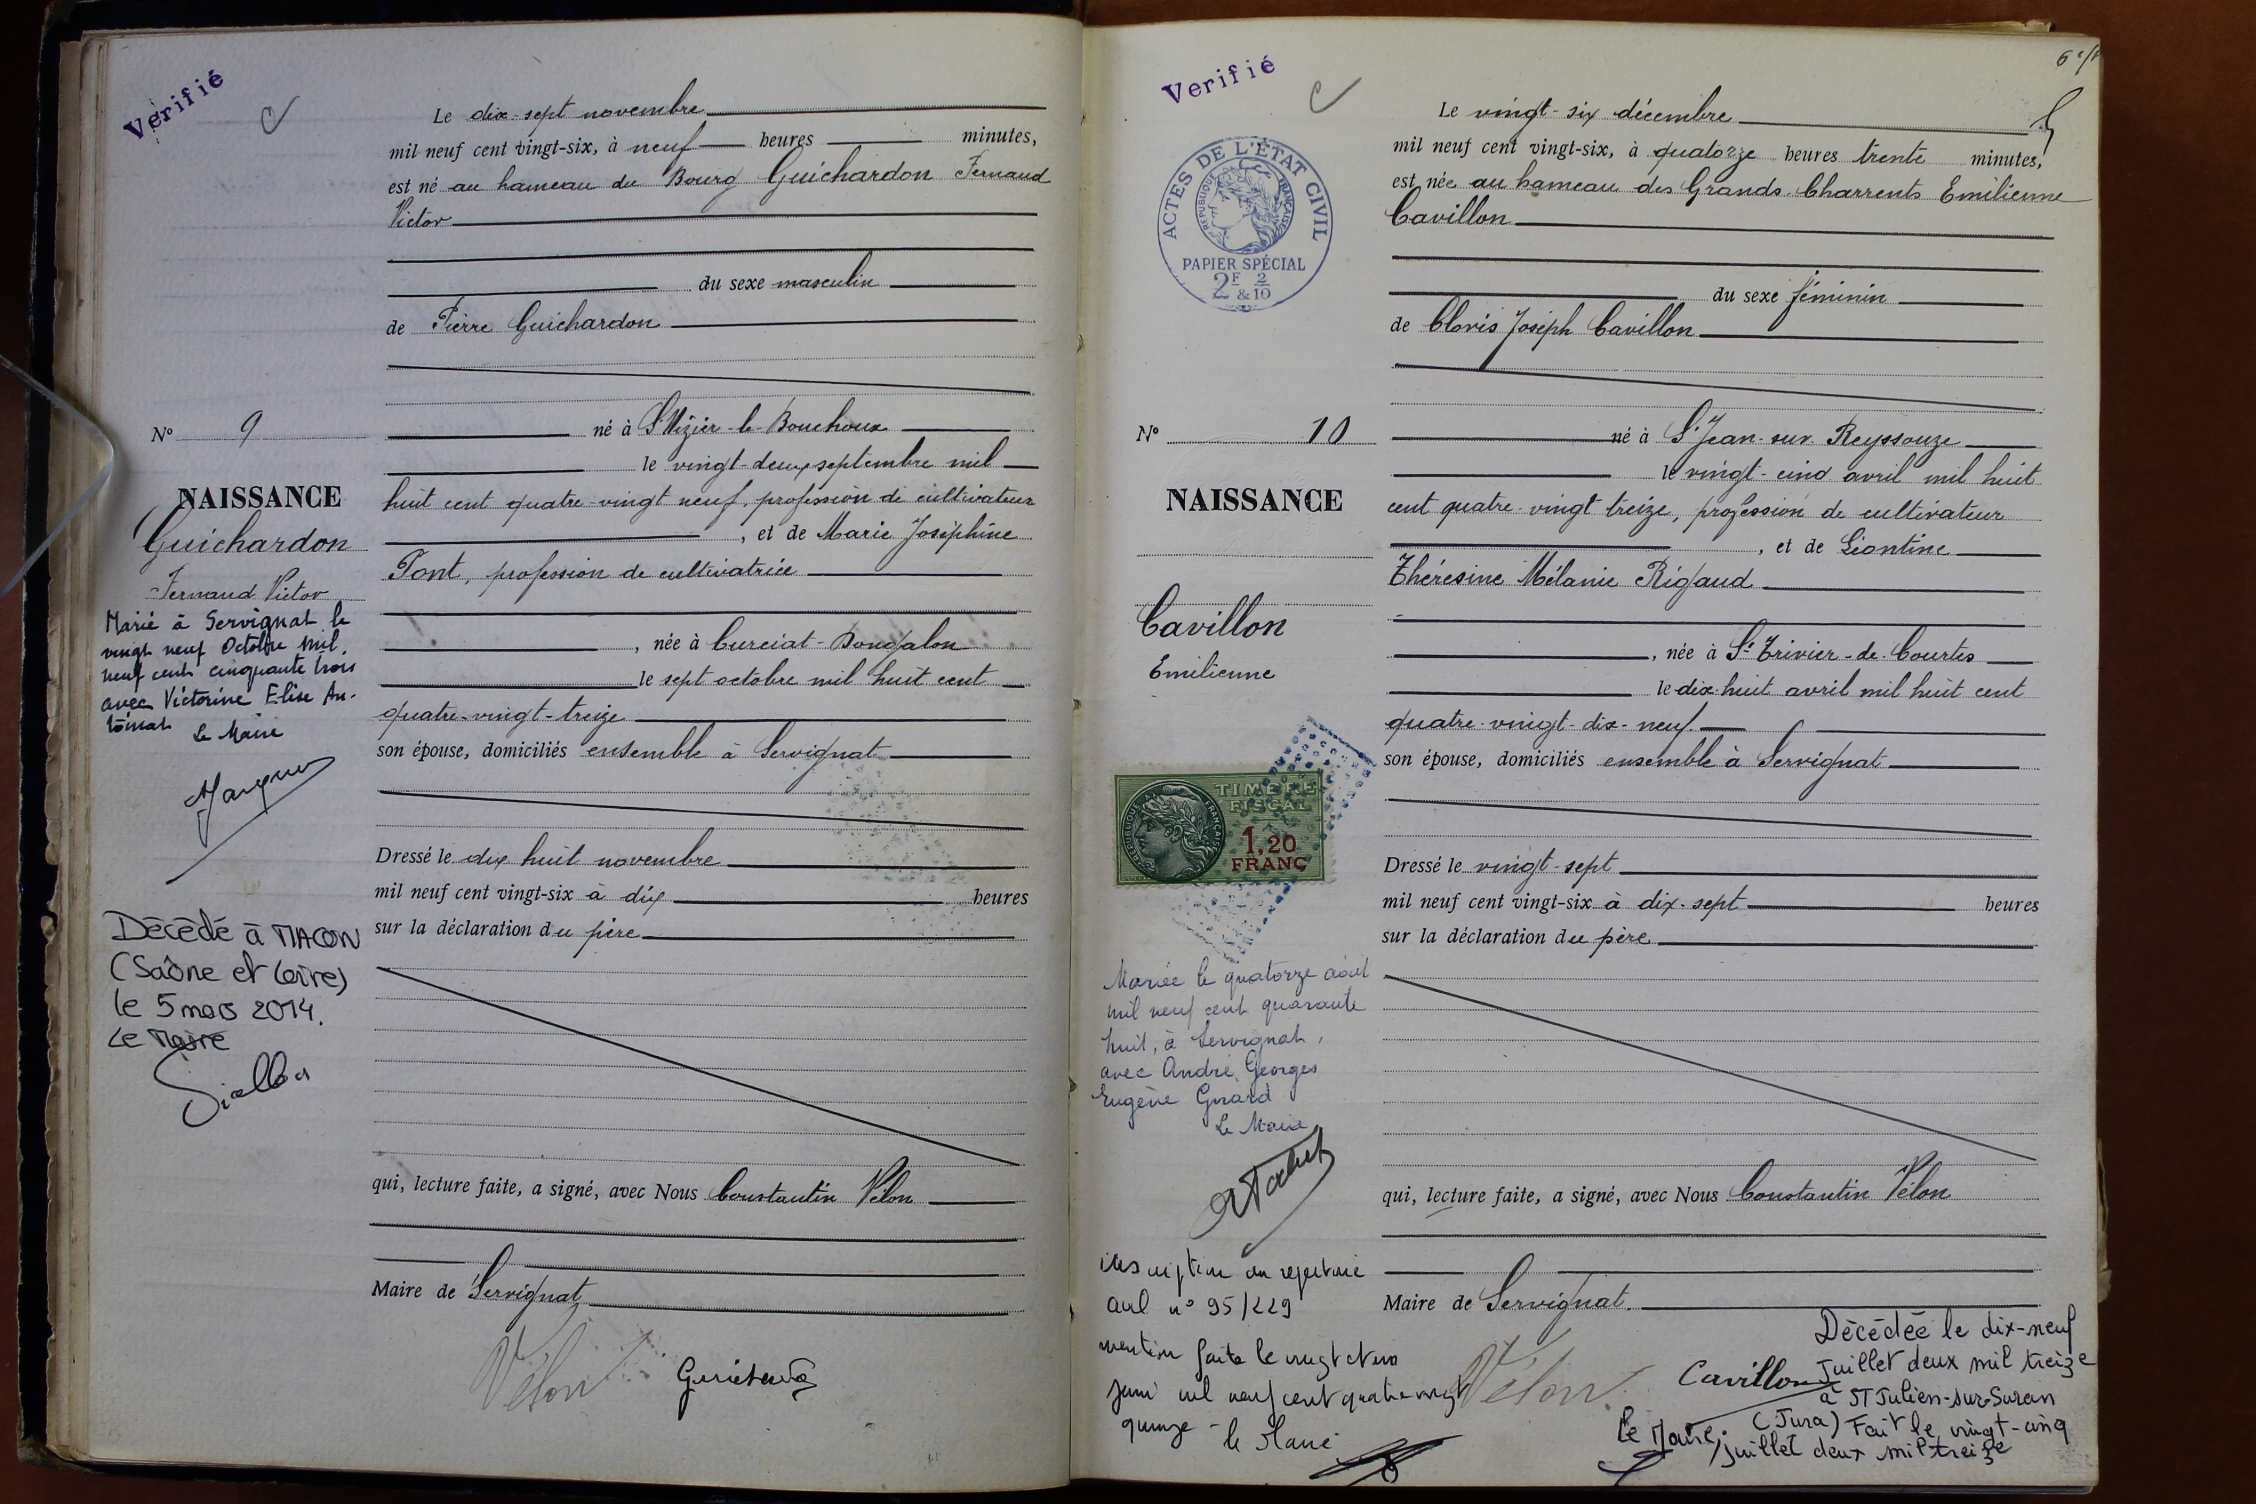 Verifié
Le dix-sept novembre
mil neuf cent vingt-six, à neuf heures minutes,
est né au hameau du Bourg Guichardon Fernand
Victor
du sexe masculin
de Pierre Guichardon
N° 9
né à St Nizier-le-Bouchoux
le vingt-deux septembre mil
NAISSANCE
huit cent quatre-vingt neuf, profession de cultivateur
Guichardon
, et de Marie Joséphine
Pont, profession de cultivatrice
Fernand Victor
Marié à Servignat le
vingt neuf Octobre mil
neuf cent cinquante trois
avec Victorine Elise An-
toinat
Le Maire
, née à Curciat-Dongalon
le sept octobre mil huit cent
quatre-vingt-treize
son épouse, domiciliés ensemble à Servignat
Dressé le dix huit novembre
mil neuf cent vingt-six à dix heures
sur la déclaration du père
Décédé à MACON
(Saône et Loire)
le 5 mars 2014.
Le Maire
qui, lecture faite, a signé, avec Nous Constantin Vélon
Maire de Servignat
Vélon
Verifié
6e/
ACTES DE L'ÉTAT CIVIL
RÉPUBLIQUE FRANÇAISE
PAPIER SPÉCIAL
2F & 2/10
Le vingt-six décembre
mil neuf cent vingt-six, à quatorze heures trente minutes,
est née au hameau des Grands Charrents Emilienne
Cavillon
du sexe féminin
de Clovis Joseph Cavillon
N° 10
né à St Jean-sur-Reyssouze
le vingt-cinq avril mil huit
NAISSANCE
cent quatre-vingt treize, profession de cultivateur
, et de Léontine
Thérésine Mélanie Rigaud
Cavillon
Emilienne
, née à St-Trivier-de-Courtes
le dix-huit avril mil huit cent
quatre-vingt-dix-neuf
son épouse, domiciliés ensemble à Servignat
RÉPUBLIQUE FRANÇAISE
TIMBRE
FISCAL
1,20
FRANC
Dressé le vingt-sept
mil neuf cent vingt-six à dix-sept heures
sur la déclaration du père
Mariée le quatorze août
mil neuf cent quarante
huit, à Servignat,
avec André Georges
Eugène Girard
Le Maire
qui, lecture faite, a signé, avec Nous Constantin Vélon
Maire de Servignat.
Vélon
Cavillon
inscription au repertoire
civil n° 95/229
mention faite le vingt et un
juin mil neuf cent quatre vingt
quinze - le Maire
Décédée le dix-neuf
Juillet deux mil treize
à ST Julien-sur-Suran
(Jura) Fait le vingt-cinq
juillet deux mil treize
Le Maire,